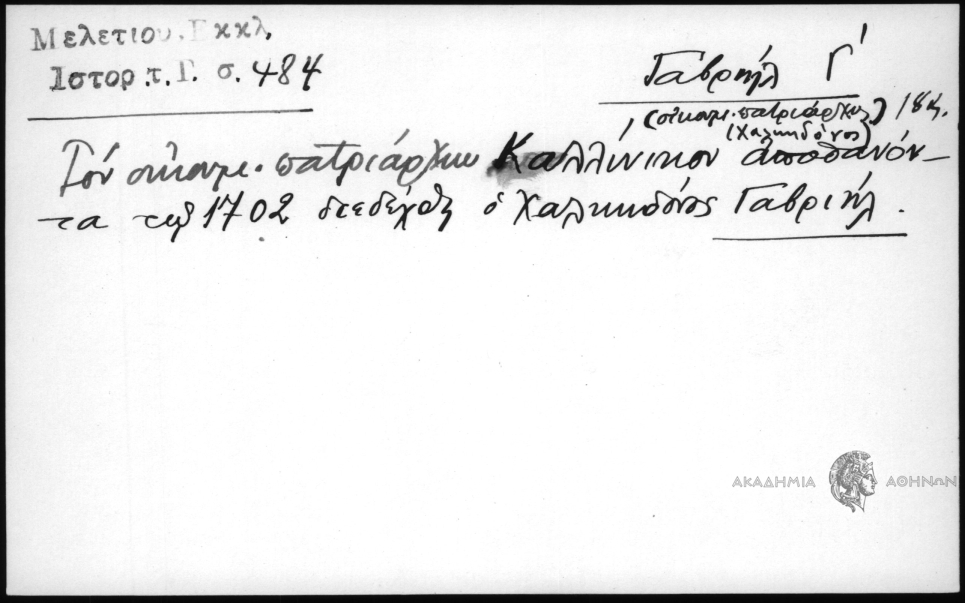 Μελετίου. Εκκλ.
Ιστορ. τ. Γ. σ. 484
Γαβριήλ Γ'
(οἰκουμ. πατριάρχης) 18ος.
(Χαλκηδόνος)
Τόν οἰκουμ. πατριάρχην Καλλίνικον ἀποθανόν-
τα τῷ 1702 διεδέχθη ὁ Χαλκηδόνος Γαβριήλ.
ΑΚΑΔΗΜΙΑ ΑΘΗΝΩΝ